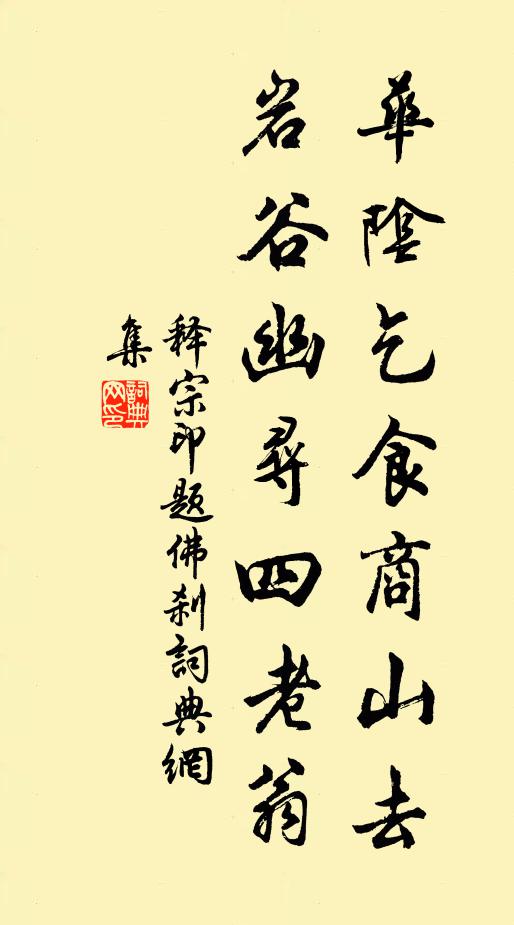 華陰乞食商山去
岩谷幽尋四老翁
释宗印題佛刹詞典網
集
詞典網印